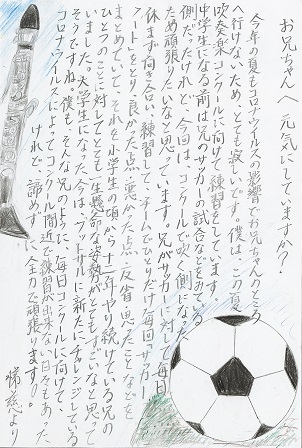 お兄ちゃんへ 元気にしていますか？
今年の夏もコロナウイルスの影響でお兄ちゃんのところ
へ行けないため、とても寂しいです。僕は、この夏
吹奏楽コンクールに向けて練習をしています。
中学生になる前は兄のサッカーの試合などをみている
側だったけれど、今回は、コンクールで吹く側になった
ため頑張りたいなと思っています。兄がサッカーに対して毎日
休まず向き合い、練習して、チームでひとりだけ毎回「サッカー
ノート」をとり、良かった点・悪かった点・反省・思ったことなどを
まとめていて、それを小学生の頃から十二年やり続けている兄の
ひとつのことに対してとても一生懸命な姿勢がとてもすごいなと思って
いました。大学生になった今は、フットサルに新たにチャレンジしている
そうですね。僕も、そんな兄のように、毎日コンクールに向けて、
コロナウイルスによってコンクール間近で練習が出来ない日々もあった
けれど、諦めずに全力で頑張ります！。
悠より